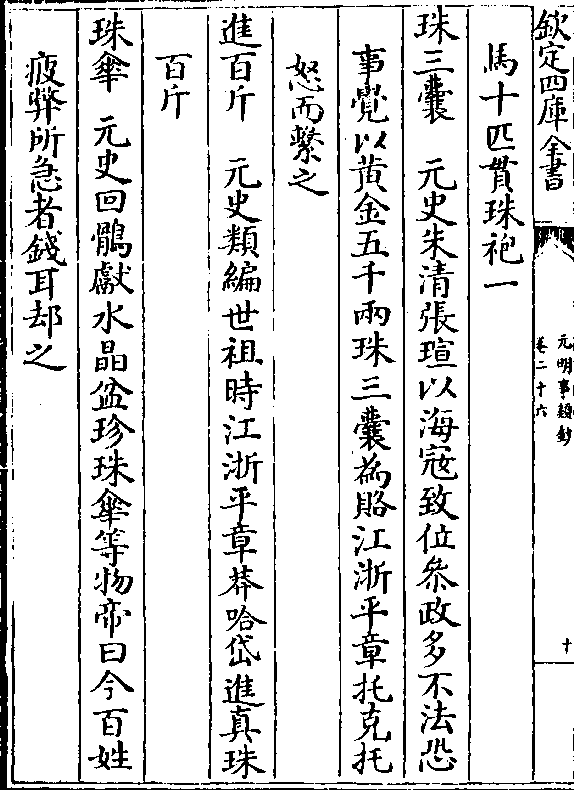 欽定四庫全書
元明事類鈔
卷二十六
十
馬十匹貫珠袍一
珠三囊　元史朱清張瑄以海寇致位叅政多不法恐
事覺以黄金五千兩珠三囊為賂江浙平章托克托
怒而繫之
進百斤　元史類編世祖時江浙平章莽哈岱進真珠
百斤
珠傘　元史回鶻獻水晶盆珍珠傘等物帝曰今百姓
疲弊所急者錢耳却之